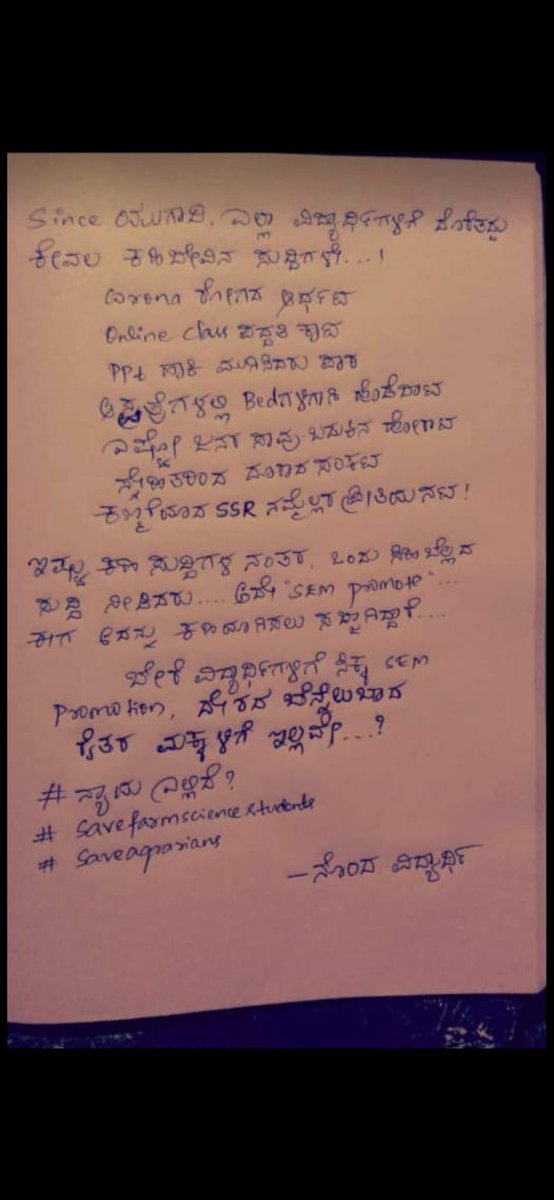 Since ಯುಗಾದಿ, ಎಲ್ಲಾ ವಿದ್ಯಾರ್ಥಿಗಳಿಗೆ ದೊರೆತದ್ದು
ಕೇವಲ ಕಹಿಬೇವಿನ ಸುದ್ದಿಗಳೇ...!
Corona ರೋಗದ ಆರ್ಭಟ
Online Class ಪದ್ದತಿ ಕಾಟ
PPt ಹಾಕಿ ಮುಗಿಸಿದರು ಪಾಠ
ಆಸ್ಪತ್ರೆಗಳಲ್ಲಿ Bedಗಳಿಗಾಗಿ ಹೊಡೆದಾಟ
ಎಷ್ಟೋ ಜನರ ಸಾವು ಬದುಕಿನ ಹೋರಾಟ
ಸ್ನೇಹಿತರಿಂದ ದೂರಾದ ಸಂಕಟ
ಕಣ್ಮರೆಯಾದ SSR ನಮ್ಮೆಲ್ಲರ ಪ್ರೀತಿಯ ನಟ!
ಇಷ್ಟು ಕಹಿ ಸುದ್ದಿಗಳ ನಂತರ, ಒಂದು ಸಿಹಿ ಬೆಲ್ಲದ
ಸುದ್ದಿ ನೀಡಿದರು.... ಅದೇ "SEM Promote"...
ಈಗ ಅದನ್ನು ಕಹಿಯಾಗಿಸಲು ಸಜ್ಜಾಗಿದ್ದಾರೆ....
ಬೇರೆ ವಿದ್ಯಾರ್ಥಿಗಳಿಗೆ ಸಿಕ್ಕ SEM
Promotion, ದೇಶದ ಬೆನ್ನೆಲುಬಾದ
ರೈತರ ಮಕ್ಕಳಿಗೆ ಇಲ್ಲವೇ...?
# ನ್ಯಾಯ ಎಲ್ಲಿದೆ?
# Savefarmscience students
# Saveagrarians
– ನೊಂದ ವಿದ್ಯಾರ್ಥಿ